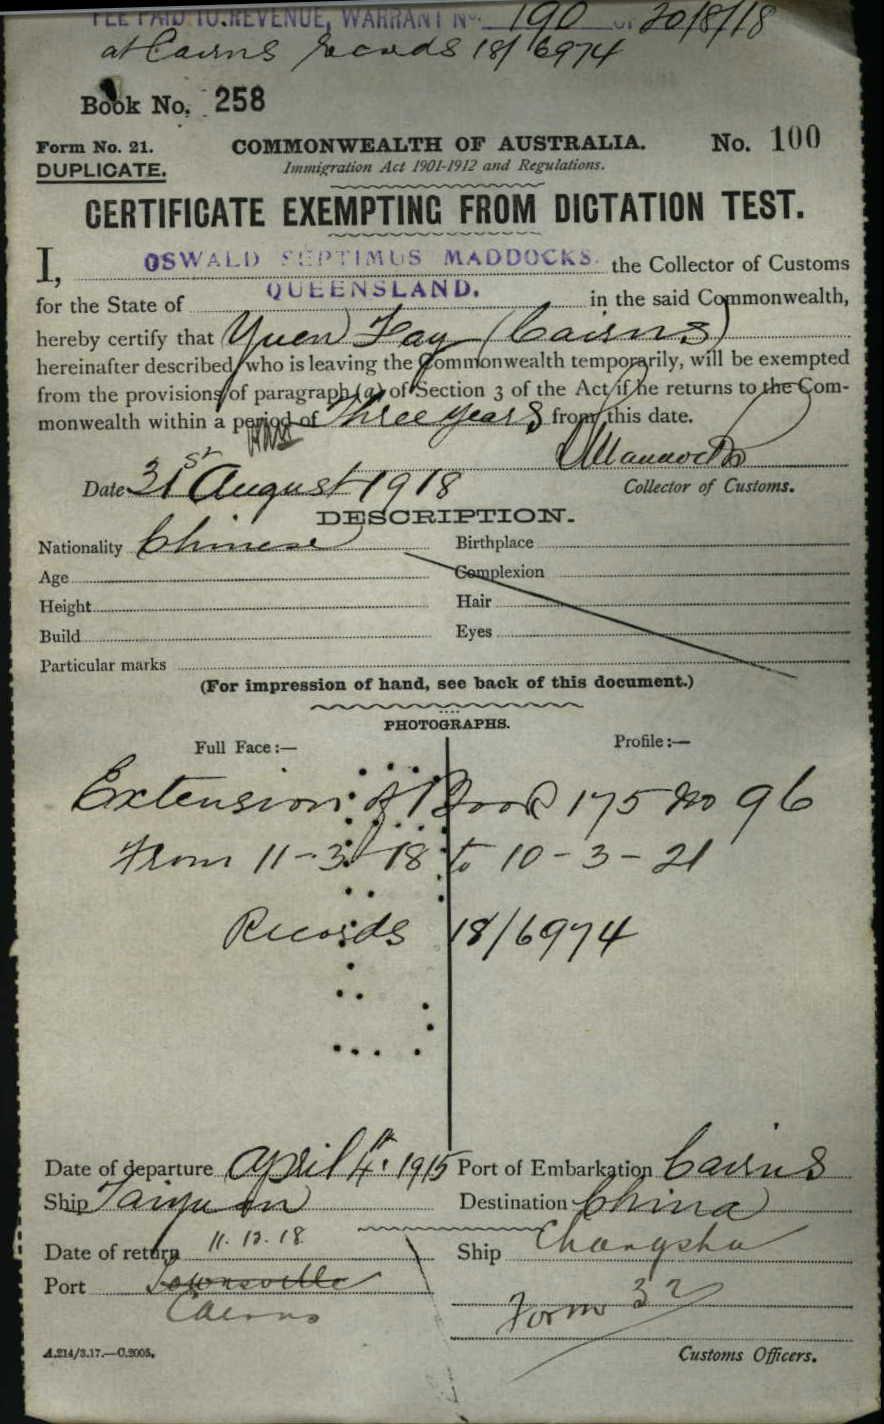 FEE PAID TO REVENUE, WARRANT No. 190 of 20/8/18
at Cairns Records 18/6974
Book No. 258
Form No. 21. COMMONWEALTH OF AUSTRALIA. No. 100
DUPLICATE. Immigration Act 1901-1912 and Regulations.
CERTIFICATE EXEMPTING FROM DICTATION TEST.
I, OSWALD SEPTIMUS MADDOCKS. the Collector of Customs
for the State of QUEENSLAND. in the said Commonwealth,
hereby certify that Yuen Fay (Cairns)
hereinafter described, who is leaving the Commonwealth temporarily, will be exempted
from the provisions of paragraph (a) of Section 3 of the Act if he returns to the Com-
monwealth within a period of Three years from this date.
Date 31st August 1918 Collector of Customs.
DESCRIPTION.
Nationality Chinese Birthplace
Age Complexion
Height Hair
Build Eyes
Particular marks
(For impression of hand, see back of this document.)
PHOTOGRAPHS.
Full Face:— Profile:—
Extension of Book 175 No 96
From 11-3-18 to 10-3-21
Records 18/6974
Date of departure April 4th. 1915 Port of Embarkation Cairns
Ship Taiyuan Destination China
Date of return 11.12.18 Ship Changsha
Port Townsville
Cairns Form 32
A.214/3.17.—C.2005. Customs Officers.